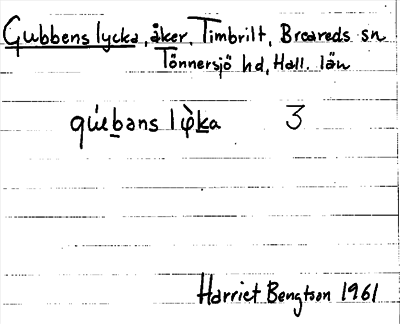 Gubbens lycka, åker, Timbrilt, Breareds sn
Tönnersjö hd, Hall. län
gúebəns lỳka 3
Harriet Bengtson 1961